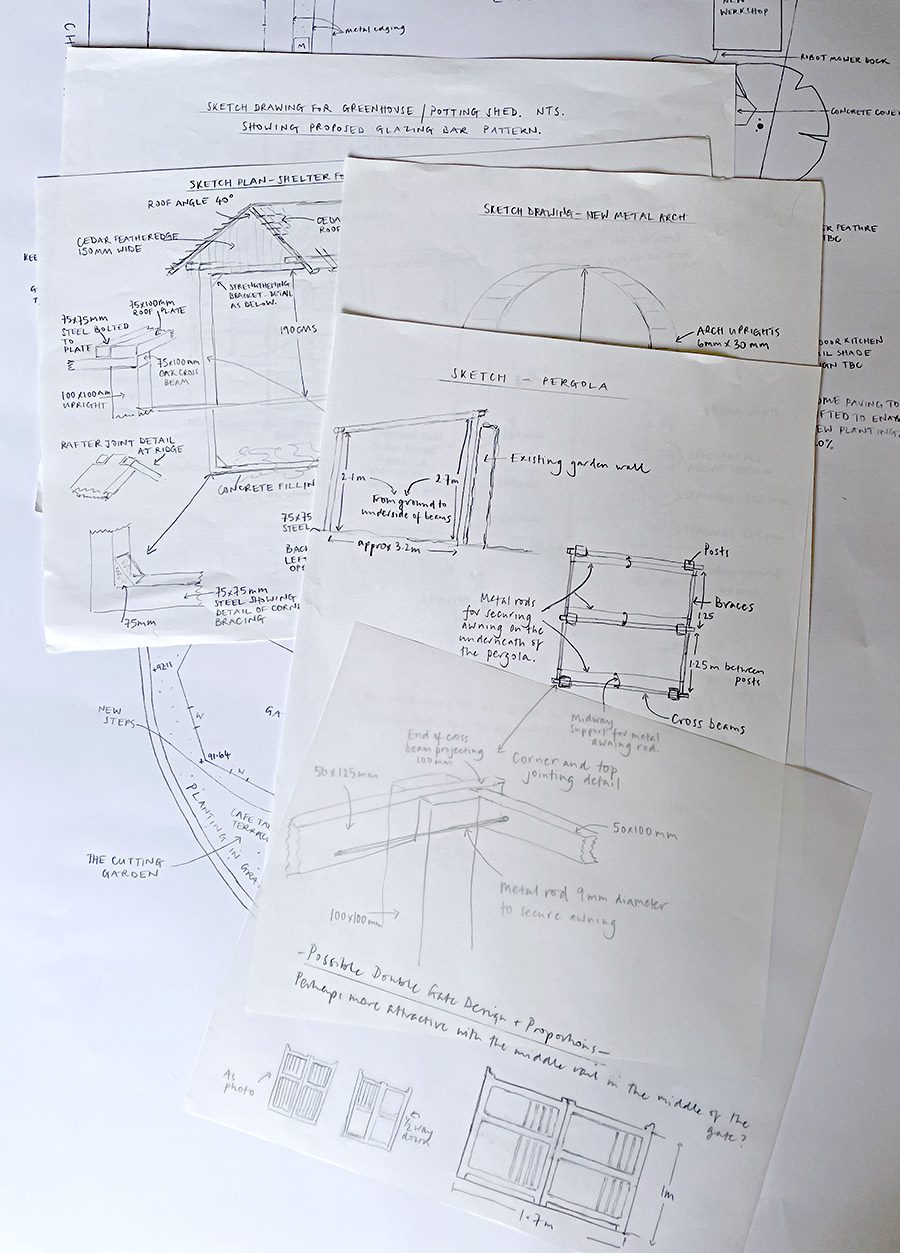 NEW
WORKSHOP
metal edging
M
ROBOT MOWER DOCK
CONCRETE COVER
SKETCH DRAWING FOR GREENHOUSE / POTTING SHED. NTS.
SHOWING PROPOSED GLAZING BAR PATTERN.
SKETCH PLAN - SHELTER
ROOF ANGLE 40°
CEDAR FEATHEREDGE
150MM WIDE
STRENGTHENING
BRACKET. DETAIL
AS BELOW.
75X100MM
ROOF PLATE
75X75MM
STEEL BOLTED
TO
PLATE
190CMS
75X100MM
OAK CROSS
BEAM
100X100MM
UPRIGHT
RAFTER JOINT DETAIL
AT RIDGE
CONCRETE
75X75
STEEL
75X75MM
STEEL SHOWING
DETAIL OF
BRACING
75MM
SKETCH DRAWING - NEW METAL ARCH
ARCH UPRIGHTS
6mm X 30mm
FEATURE
TBC
KITCHEN
SHADE
TBC
PAVING TO
NEW PLANTING.
SKETCH - PERGOLA
Existing garden wall
2.1m
2.7m
From ground to
underside of beams
approx 3.2m
Posts
Braces
1.25
1.25m between
posts
Cross beams
Metal rods
for securing
awning on the
underneath of
the pergola.
Midway
support for metal
awning rod.
Corner and top
jointing detail
End of cross
beam projecting
100mm
50x125mm
50x100mm
Metal rod 9mm diameter
to secure awning
100x100mm
9211
91.64
W
W
NEW
STEPS
PLANTING IN
THE CUTTING
GARDEN
- Possible Double Gate Design + Proportions -
Perhaps more attractive with the middle rail in the middle of the
gate?
As
photo
1/2 way
down
1m
1.7m